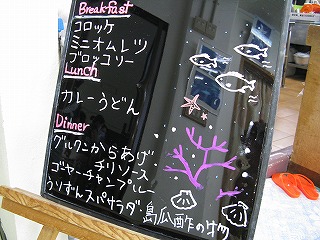 Breakfast
コロッケ
ミニオムレツ
ブロッコリー
Lunch
カレーうどん
Dinner
グルクンからあげ
チリソース
ゴーヤーチャンプルー
うりずんスパサラダ・島瓜酢の物